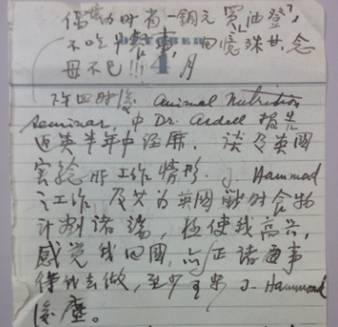 时省一铜元买油登,
不吃 事,回境珠甘,念
母不已!!! 4月
四时后 Animal Nutrition
Seminar, 中 Dr. Asdell 报告
返英半年中经历. 谈及英国
实验所工作情形. J. Hammond
之工作, 及其为英国战时食物
计划诸端, 极使我高兴,
感觉我回国, 亦正诸事
待我去做, 至少 J. Hammond
后尘。